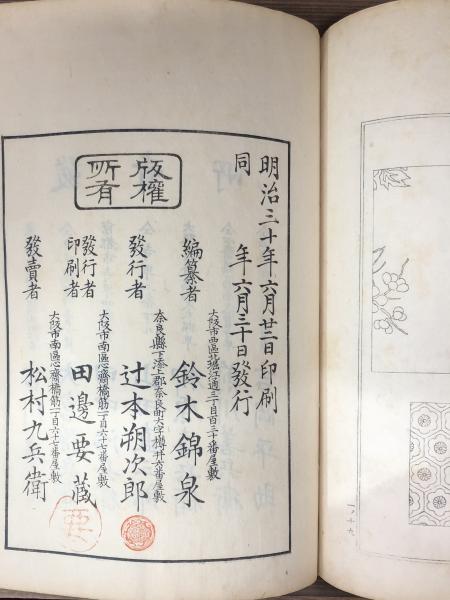 明治三十年六月廿二日印刷
同　年六月三十日發行
版權所有
大阪市西區北堀江通三丁目百三十番屋敷
編纂者　鈴木錦泉
奈良縣下添上郡奈良町大字樽井六番屋敷
發行者　辻本朔次郎
大阪市南區心齋橋筋一丁目六十七番屋敷
發行者
印刷者　田邊要藏
大阪市南區心齋橋筋一丁目六十七番屋敷
發賣者　松村九兵衛